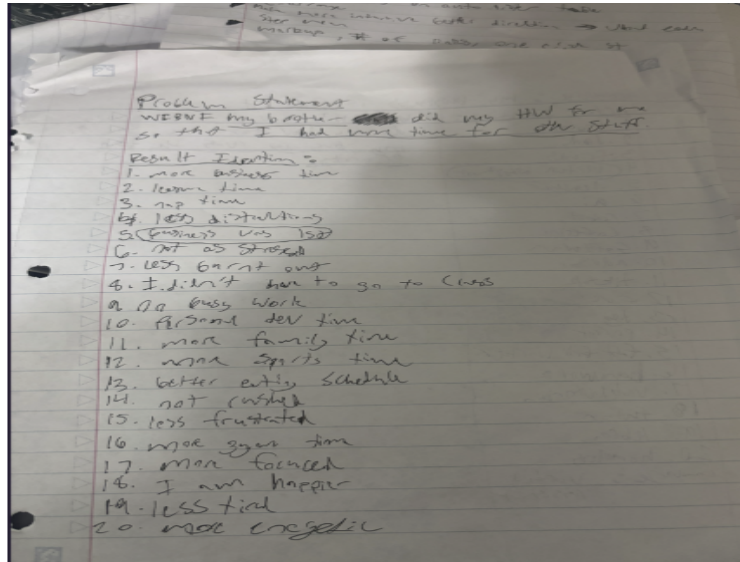 more intuitive better direction →
markups, # of
Problem Statement
WIBNI my brother did my HW for me
so that I had more time for other stuff
Result Ideation:
1. more business time
2. leisure time
3. nap time
4. less distractions
5. business was 1st
6. not as stressed
7. less burnt out
8. I didn't have to go to class
9. no busy work
10. Personal dev time
11. more family time
12. more sports time
13. better eating schedule
14. not rushed
15. less frustrated
16. more gym time
17. more focused
18. I am happier
19. less tired
20. more energetic